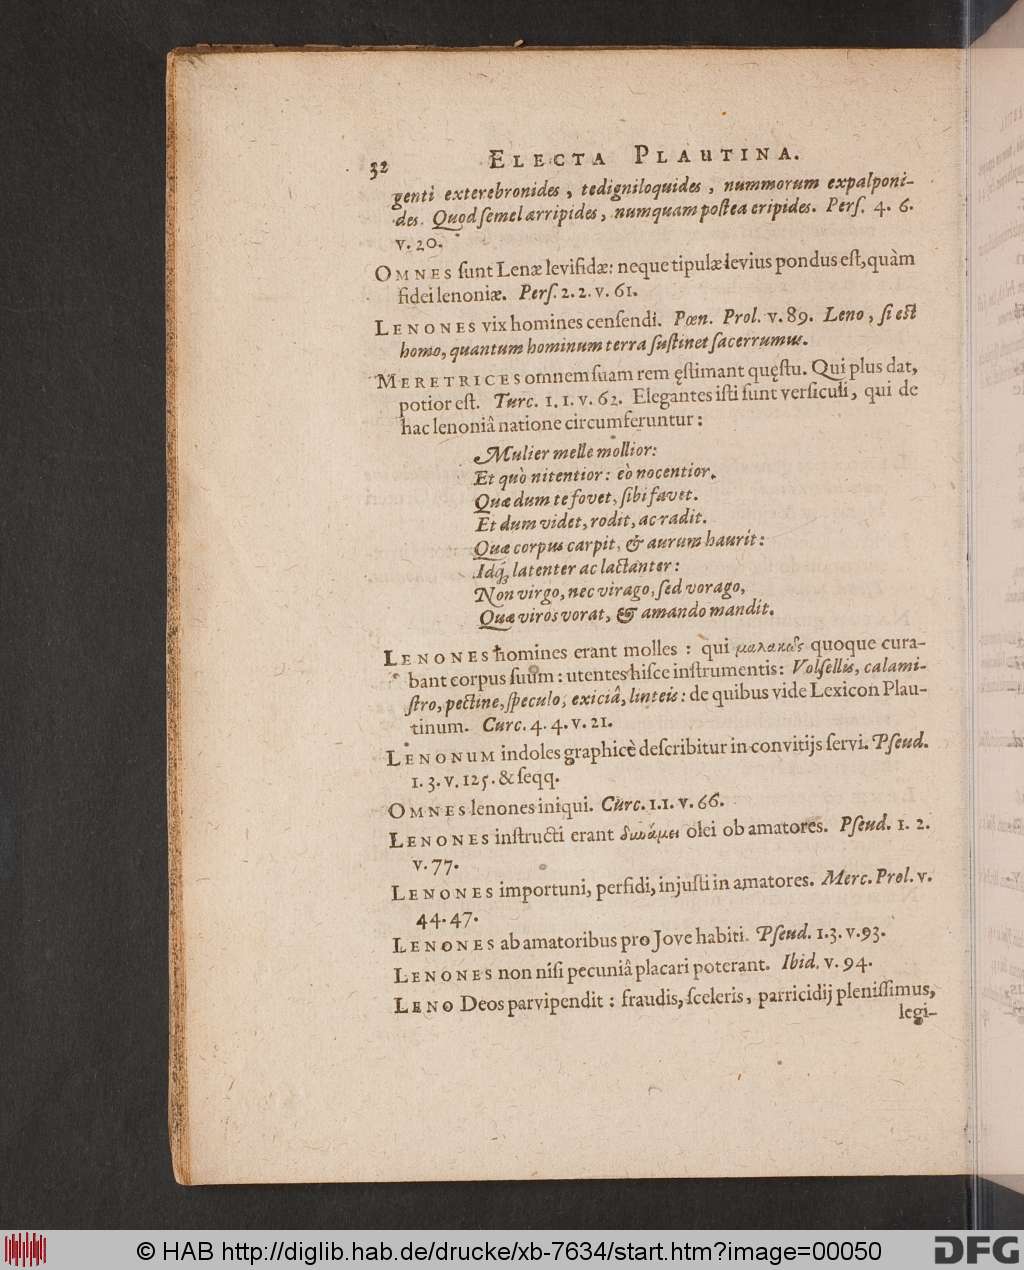 32 ELECTA PLAUTINA.
genti exterebronides, tedigniloquides, nummorum expalponi-
des. Quod ſemel arripides, numquam poſtea eripides. Perſ. 4. 6.
v. 20.
OMNES ſunt Lenæ levifidæ: neque tipulæ levius pondus eſt, quàm
fidei lenoniæ. Perſ. 2. 2. v. 61.
LENONES vix homines cenſendi. Pœn. Prol. v. 89. Leno, ſi eſt
homo, quantum hominum terra ſuſtinet ſacerrumus.
MERETRICES omnem ſuam rem ęſtimant quęſtu. Qui plus dat,
potior eſt. Turc. 1. 1. v. 62. Elegantes iſti ſunt verſiculi, qui de
hac lenoniâ natione circumferuntur:
Mulier melle mollior:
Et quò nitentior: eò nocentior.
Quæ dum te fovet, ſibi favet.
Et dum videt, rodit, ac radit.
Quæ corpus carpit, & aurum haurit:
Idq́; latenter ac lactanter:
Non virgo, nec virago, ſed vorago,
Quæ viros vorat, & amando mandit.
LENONES homines erant molles: qui μαλακῶς quoque cura-
bant corpus ſuum: utentes hiſce inſtrumentis: Volſellis, calami-
ſtro, pectine, ſpeculo, exiciâ, linteis: de quibus vide Lexicon Plau-
tinum. Curc. 4. 4. v. 21.
LENONUM indoles graphicè deſcribitur in convitijs ſervi. Pſeud.
1. 3. v. 125. & ſeqq.
OMNES lenones iniqui. Curc. 1. 1. v. 66.
LENONES inſtructi erant δυνάμει olei ob amatores. Pſeud. 1. 2.
v. 77.
LENONES importuni, perfidi, injuſti in amatores. Merc. Prol. v.
44. 47.
LENONES ab amatoribus pro Jove habiti. Pſeud. 1. 3. v. 93.
LENONES non niſi pecuniâ placari poterant. Ibid. v. 94.
LENO Deos parvipendit: fraudis, ſceleris, parricidij pleniſſimus,
legi-
© HAB http://diglib.hab.de/drucke/xb-7634/start.htm?image=00050
DFG